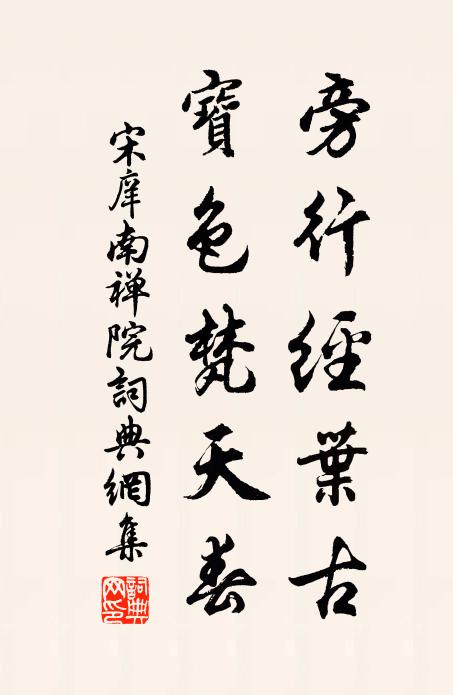 旁行經葉古
寶色梵天春
宋庠南禅院詞典網集
詞典網印